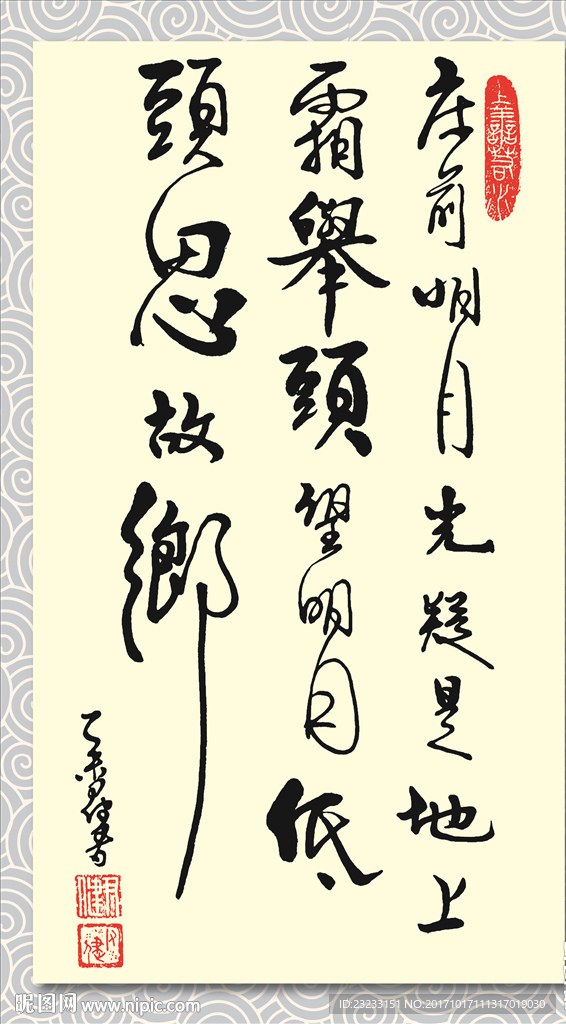 床前明月光疑是地上
霜舉頭望明月低
頭思故鄉
昵图网 www.nipic.com
ID:23233151 NO:20171017111317019030